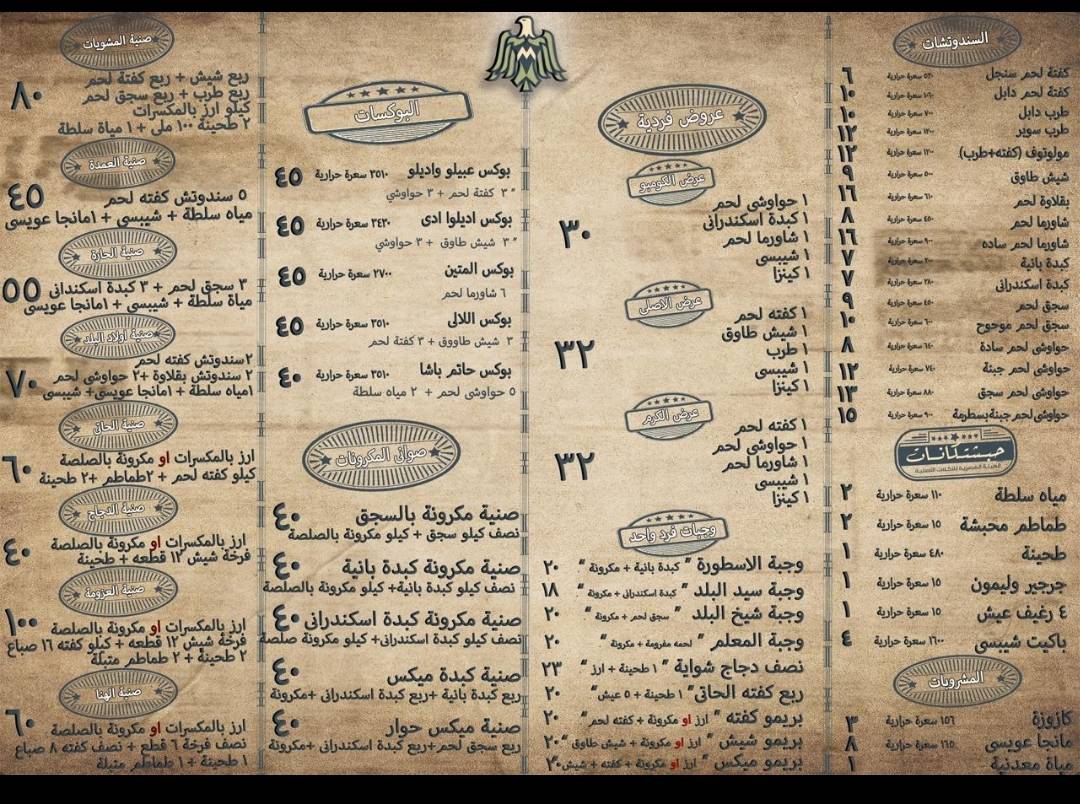 السندوتشات
كفتة لحم سنجل ٥٣٠ سعرة حرارية ٦
كفتة لحم دابل ١٠٦٠ سعرة حرارية ١٠
طرب دابل ٧٠٠ سعرة حرارية ١٠
طرب سوبر ١٢٠٠ سعرة حرارية ١٢
مولوتوف (كفته+طرب) ١٢٠٠ سعرة حرارية ١٢
شيش طاوق ٥٠٠ سعرة حرارية ٩
بقلاوة لحم ٦١٠ سعرة حرارية ١٦
شاورما لحم ٤٥٠ سعرة حرارية ٨
شاورما لحم ساده ٩٠٠ سعرة حرارية ١٦
كبدة بانية سعرة حرارية ٧
كبدة اسكندرانى ٢٨٠ سعرة حرارية ٧
سجق لحم ٤٥٠ سعرة حرارية ٩
سجق لحم موحوح ٦٠٠ سعرة حرارية ١٠
حواوشى لحم سادة ٦٤٠ سعرة حرارية ٨
حواوشى لحم جبنة ٧٤٠ سعرة حرارية ١٢
حواوشى لحم سجق ٨٨٠ سعرة حرارية ١٣
حواوشى لحم جبنة بسطرمة ٩٠٠ سعرة حرارية ١٥
حبشتكانات
مياه سلطة ١١٠ سعرة حرارية ٢
طماطم مخبشة ١٥ سعرة حرارية ٢
طحينة ٤٨٠ سعرة حرارية ١
جرجير وليمون ١٥ سعرة حرارية ١
٤ رغيف عيش ١٥ سعرة حرارية ١
باكيت شيبسى ١٦٠٠ سعرة حرارية ٤
المشروبات
كازوزة ١٥٦ سعرة حرارية ٣
مانجا عويسى ١٦٥ سعرة حرارية ٨
مياة معدنية ١
عروض فردية
عرض الكومبو
١ حواوشى لحم
١ كبدة اسكندرانى
١ شاورما لحم
١ شيبسى
١ كينزا
٣٠
عرض الاصلى
١ كفته لحم
١ شيش طاوق
١ طرب
١ شيبسى
١ كينزا
٣٢
عرض الكرم
١ كفته لحم
١ حواوشى لحم
١ شاورما لحم
١ شيبسى
١ كينزا
٣٢
وجبات فرد واحد
وجبة الاسطورة " كبدة بانية + مكرونة " ٢٠
وجبة سيد البلد " كبدة اسكندرانى + مكرونة " ١٨
وجبة شيخ البلد " سجق لحم + مكرونة " ٢٠
وجبة المعلم " لحمه مفرومة + مكرونة " ٢٠
نصف دجاج شواية " ١ طحينة + ارز " ٢٣
ربع كفته الحاتى " ١ طحينة + ٥ عيش " ٢٠
بريمو كفته " ارز او مكرونة + كفته لحم " ٢٠
بريمو شيش " ارز او مكرونة + شيش طاوق " ٢٠
بريمو ميكس " ارز او مكرونة + كفته + شيش " ٢٠
البوكسات
بوكس عبيلو واديلو ٣٥١٠ سعرة حرارية ٤٥
" ٣ كفتة لحم + ٣ حواوشي
بوكس اديلوا ادى ٣٤٢٠ سعرة حرارية ٤٥
" ٣ شيش طاوق + ٣ حواوشي
بوكس المتين ٢٧٠٠ سعرة حرارية ٤٥
٦ شاورما لحم
بوكس اللالى ٣٥١٠ سعرة حرارية ٤٥
٣ شيش طاووق + ٣ كفتة لحم
بوكس حاتم باشا ٣٥١٠ سعرة حرارية ٤٠
٥ حواوشى لحم + ٢ مياه سلطة
صوانى المكرونات
صنية مكرونة بالسجق ٤٠
نصف كيلو سجق + كيلو مكرونة بالصلصة
صنية مكرونة كبدة بانية ٤٠
نصف كيلو كبدة بانية+ كيلو مكرونة بالصلصة
صنية مكرونة كبدة اسكندرانى ٤٠
نصف كيلو كبدة اسكندرانى+ كيلو مكرونة صلصة
صنية كبدة ميكس ٤٠
ربع كبدة بانية +ربع كبدة اسكندرانى +مكرونة
صنية ميكس حوار ٤٠
ربع سجق لحم+ربع كبدة اسكندرانى +مكرونة
صنية المشويات
ربع شيش + ربع كفتة لحم
ربع طرب + ربع سجق لحم
كيلو ارز بالمكسرات
٢ طحينة ١٠٠ ملى + ١ مياة سلطة
٨٠
صنية العمدة
٥ سندوتش كفته لحم
مياه سلطة + شيبسى + ١مانجا عويسى
٤٥
صنية الحارة
٣ سجق لحم + ٣ كبدة اسكندانى
مياة سلطة + شيبسى + ١مانجا عويسى
٥٥
صنية اولاد البلد
٢سندوتش كفته لحم
٢ سندوتش بقلاوة +٢ حواوشى لحم
١مياه سلطة + ١مانجا عويسى+ شيبسى
٧٠
صنية الحاتى
ارز بالمكسرات او مكرونة بالصلصة
كيلو كفته لحم + ٢طماطم +٢ طحينة
٦٠
صنية الدجاج
ارز بالمكسرات او مكرونة بالصلصة
فرخة شيش ١٢ قطعه + طحينة
٤٠
صنية العزومة
ارز بالمكسرات او مكرونة بالصلصة
فرخة شيش ١٢ قطعه + كيلو كفته ١٦ صباع
٢ طحينة + ٢ طماطم متبلة
١٠٠
صنية الهنا
ارز بالمكسرات او مكرونة بالصلصة
نصف فرخة ٦ قطع + نصف كفته ٨ صباع
١ طحينة + ١ طماطم متبلة
٦٠